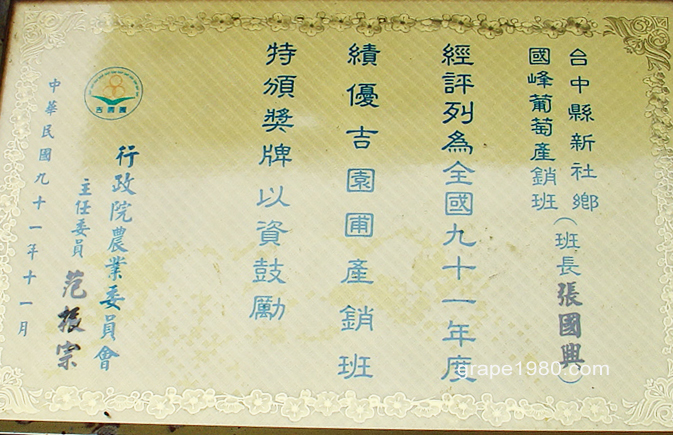 台中縣新社鄉
國峰葡萄產銷班
(班長張國興)
經評列為全國九十一年度
績優吉園圃產銷班
特頒獎牌以資鼓勵
吉園圃
行政院農業委員會
主任委員 范振宗
中華民國九十一年十一月
grape1980.com